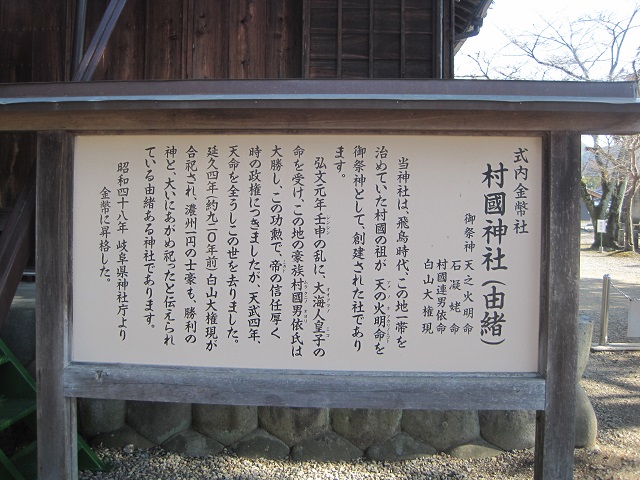 式内金幣社
村國神社(由緒)
御祭神 天之火明命
石凝姥命
村國連男依命
白山大権現
当神社は、飛鳥時代、この地一帯を
治めていた村國の祖が 天の火明命を
御祭神として、創建された社であり
ます。
弘文元年壬申の乱に、大海人皇子の
命を受け、この地の豪族村國男依氏は
大勝し、この功勲で、帝の信任厚く
時の政権につきましたが、天武四年、
天命を全うしこの世を去りました。
延久四年(約九二〇年前)白山大権現が
合祀され 濃州一円の士豪も、勝利の
神と、大いにあがめ祀ったと伝えられ
ている由緒ある神社であります。
昭和四十八年 岐阜県神社庁より
金幣に昇格した。